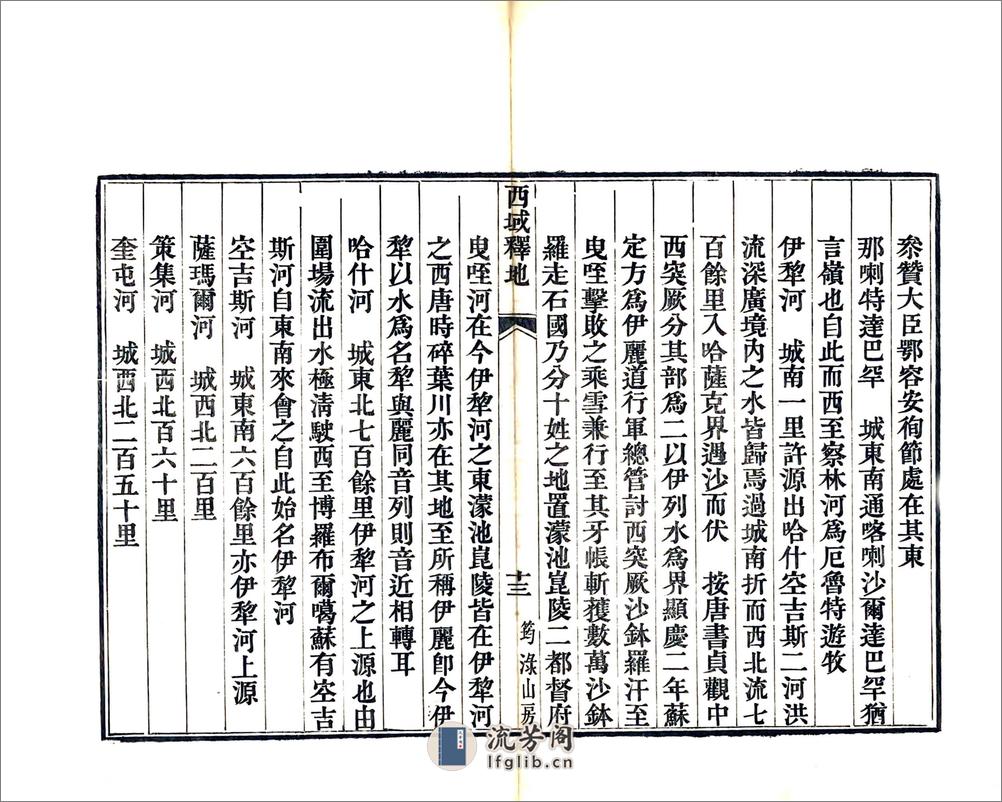 叅贊大臣鄂容安徇節處在其東
那喇特達巴罕　城東南通喀喇沙爾達巴罕猶
言嶺也自此而西至察林河爲厄魯特遊牧
伊犂河　城南一里許源出哈什空吉斯二河洪
流深廣境內之水皆歸焉過城南折而西北流七
百餘里入哈薩克界過沙而伏　按唐書貞觀中
西突厥分其部爲二以伊列水爲界顯慶二年蘇
定方爲伊麗道行軍總管討西突厥沙鉢羅汗至
曳咥擊敗之乘雪兼行至其牙帳斬獲數萬沙鉢
羅走石國乃分十姓之地置濛池崑陵二都督府
西域釋地
十三
筠淥山房
曳咥河在今伊犂河之東濛池崑陵皆在伊犂河
之西唐時碎葉川亦在其地至所稱伊麗卽今伊
犂以水爲名犂與麗同音列則音近相轉耳
哈什河　城東北七百餘里伊犂河之上源也由
圍場流出水極淸駛西至博羅布爾噶蘇有空吉
斯河自東南來會之自此始名伊犂河
空吉斯河　城東南六百餘里亦伊犂河上源
薩瑪爾河　城西北二百里
策集河　城西北百六十里
奎屯河　城西北二百五十里
流芳阁
lfglib.cn